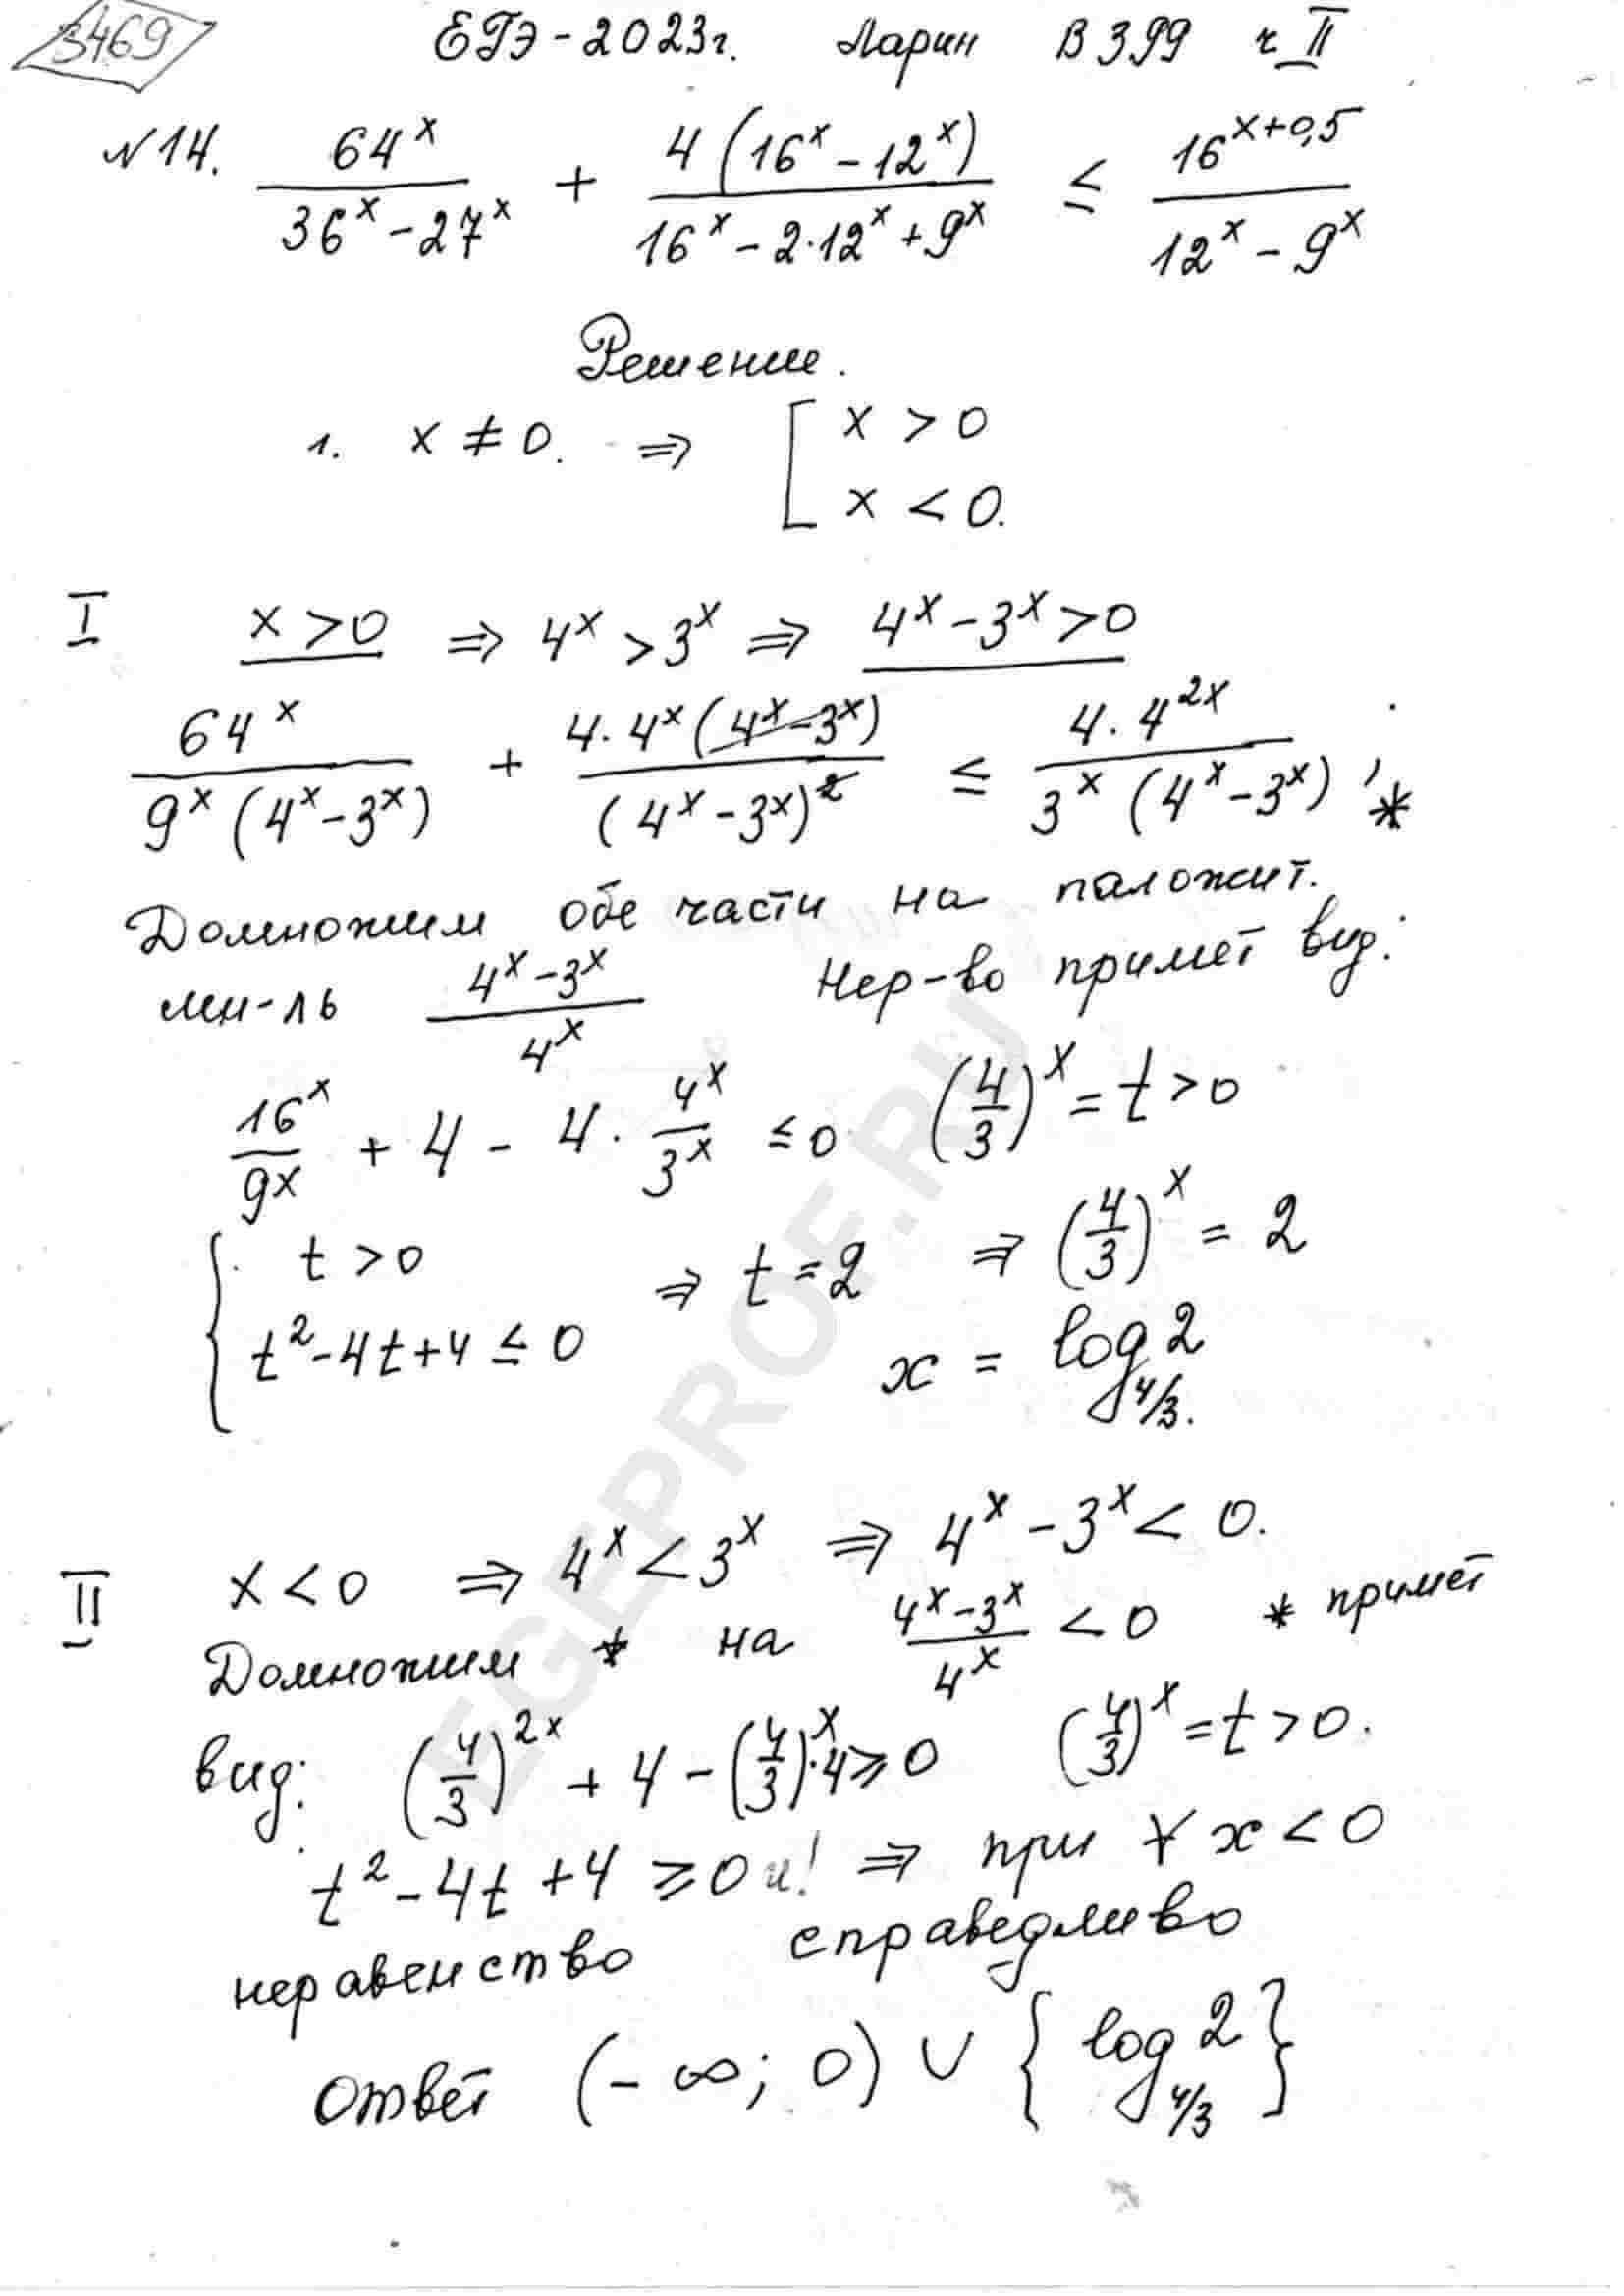 3469
ЕГЭ-2023г. Ларин В399 ч II
№14. 64^x / (36^x - 27^x) + 4(16^x - 12^x) / (16^x - 2·12^x + 9^x) ≤ 16^(x+0,5) / (12^x - 9^x)
Решение.
1. x ≠ 0. ⇒ [ x > 0
x < 0.
I x > 0 ⇒ 4^x > 3^x ⇒ 4^x - 3^x > 0
64^x / (9^x (4^x - 3^x)) + 4·4^x (4^x - 3^x) / (4^x - 3^x)^2 ≤ 4·4^(2x) / (3^x (4^x - 3^x)) ; *
Домножим обе части на положит.
мн-ль (4^x - 3^x) / 4^x Нер-во примет вид:
16^x / 9^x + 4 - 4· 4^x / 3^x ≤ 0 (4/3)^x = t > 0
{ t > 0
t^2 - 4t + 4 ≤ 0 ⇒ t = 2 ⇒ (4/3)^x = 2
x = log_4/3 2.
II x < 0 ⇒ 4^x < 3^x ⇒ 4^x - 3^x < 0.
Домножим * на (4^x - 3^x) / 4^x < 0 * примет
вид: (4/3)^2x + 4 - (4/3)^x · 4 ≥ 0 (4/3)^x = t > 0.
t^2 - 4t + 4 ≥ 0 и! ⇒ при ∀ x < 0
неравенство справедливо
Ответ (-∞; 0) ∪ { log_4/3 2 }
EGEPROF.RU